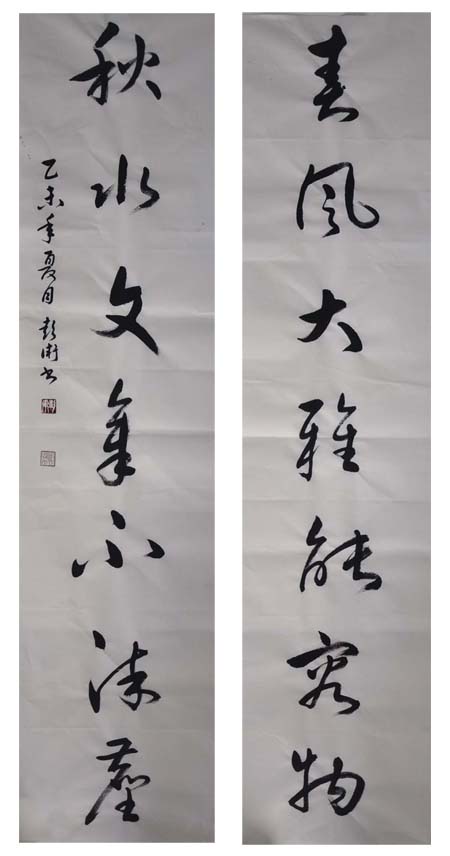 春風大雅能容物
秋水文章不染塵
乙未年夏月 彭書